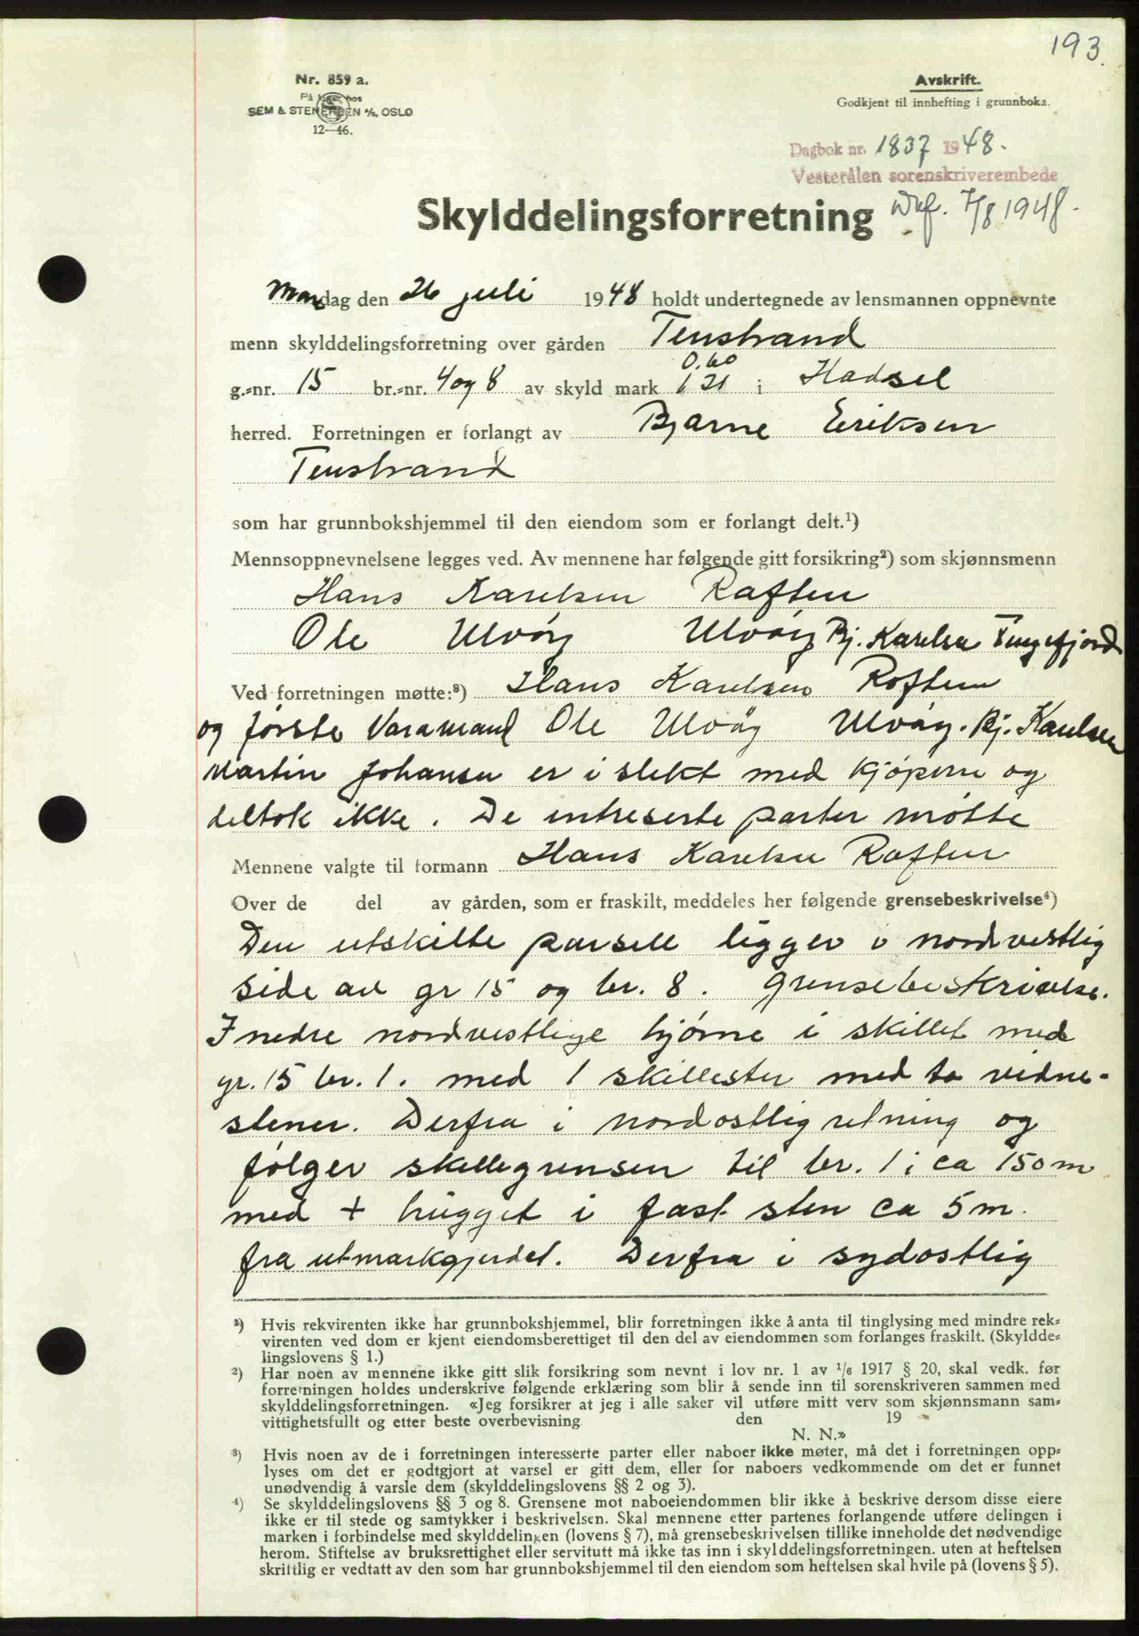 193.
Nr. 859 a.
På lager hos
SEM & STENERSEN A/S, OSLO
12—46.
Avskrift.
Godkjent til innhefting i grunnboka.
Dagbok nr. 1837 1948.
Vesterålen sorenskriverembede
7/8 1948.
Skylddelingsforretning
Mandag den 26 juli 1948 holdt undertegnede av lensmannen oppnevnte
menn skylddelingsforretning over gården Tenstrand
0.60
g.-nr. 15 br.-nr. 4 og 8 av skyld mark 1 21 i Hadsel
herred. Forretningen er forlangt av Bjarne Eriksen
Tenstrand
som har grunnbokshjemmel til den eiendom som er forlangt delt.¹)
Mennsoppnevnelsene legges ved. Av mennene har følgende gitt forsikring²) som skjønnsmenn
Hans Karelsen Raften
Ole Ulvåg Ulvåg Bj. Karelsen Tengefjord
Ved forretningen møtte:³) Hans Karelsen Raften
og første Varamand Ole Ulvåg Ulvåg. Bj. Karelsen
Martin Johansen er i slekt med kjøperne og
deltok ikke. De intreserte parter møtte
Mennene valgte til formann Hans Karelsen Raften
Over de del av gården, som er fraskilt, meddeles her følgende grensebeskrivelse⁴)
Den utskilte parsell ligger i nordvestlig
side av gr 15 og br. 8. Grensebeskrivelse.
I nedre nordvestlige hjørne i skillet med
gr. 15 br. 1. med 1 skillesten med to vidne-
stener. Derfra i nordostlig retning og
følger skillegrensen til br. 1 i ca 150 m
med + hugget i fast sten ca 5 m.
fra utmarkgjerdet. Derfra i sydostlig
¹) Hvis rekvirenten ikke har grunnbokshjemmel, blir forretningen ikke å anta til tinglysing med mindre rek-
virenten ved dom er kjent eiendomsberettiget til den del av eiendommen som forlanges fraskilt. (Skyldde-
lingslovens § 1.)
²) Har noen av mennene ikke gitt slik forsikring som nevnt i lov nr. 1 av 1/6 1917 § 20, skal vedk. før
forretningen holdes underskrive følgende erklæring som blir å sende inn til sorenskriveren sammen med
skylddelingsforretningen. «Jeg forsikrer at jeg i alle saker vil utføre mitt verv som skjønnsmann sam-
vittighetsfullt og etter beste overbevisning den 19
N. N.»
³) Hvis noen av de i forretningen interesserte parter eller naboer ikke møter, må det i forretningen opp-
lyses om det er godtgjort at varsel er gitt dem, eller for naboers vedkommende om det er funnet
unødvendig å varsle dem (skylddelingslovens §§ 2 og 3).
⁴) Se skylddelingslovens §§ 3 og 8. Grensene mot naboeiendommen blir ikke å beskrive dersom disse eiere
ikke er til stede og samtykker i beskrivelsen. Skal mennene etter partenes forlangende utføre delingen i
marken i forbindelse med skylddelingen (lovens § 7), må grensebeskrivelsen tillike inneholde det nødvendige
herom. Stiftelse av bruksrettighet eller servitutt må ikke tas inn i skylddelingsforretningen. uten at heftelsen
skriftlig er vedtatt av den som har grunnbokshjemmel til den eiendom som heftelsen skal hvile på (lovens § 5).